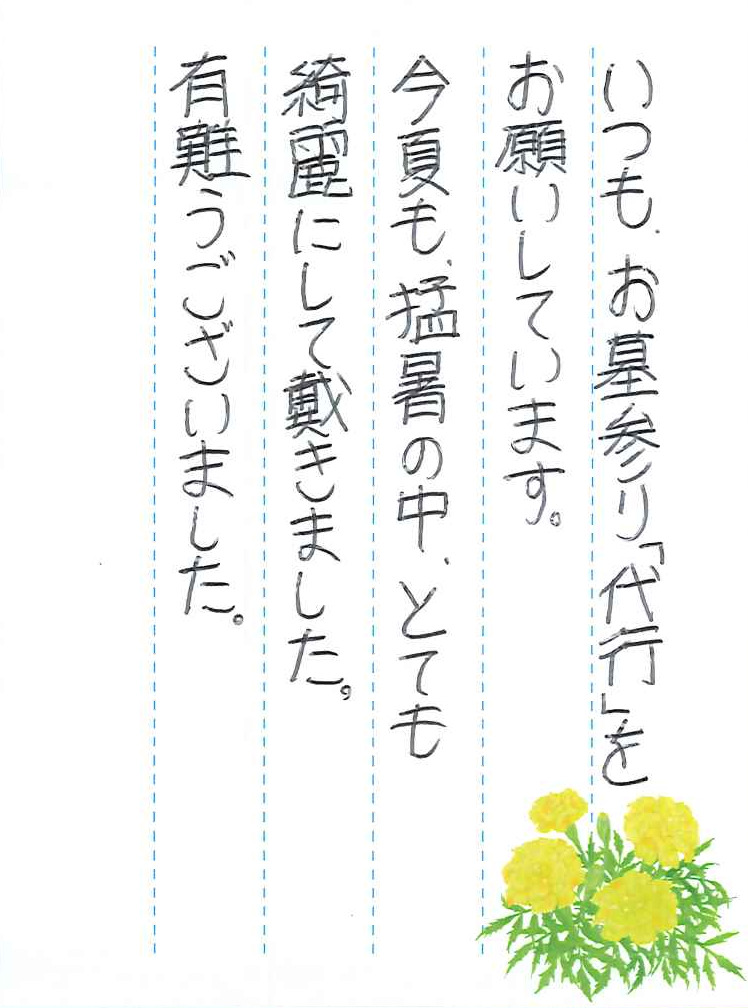 いつも、お墓参り「代行」を
お願いしています。
今夏も、猛暑の中、とても
綺麗にして戴きました。
有難うございました。